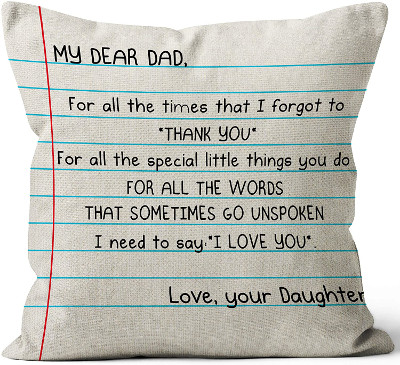 MY DEAR DAD,
For all the times that I forgot to
"THANK YOU"
For all the special little things you do
FOR ALL THE WORDS
THAT SOMETIMES GO UNSPOKEN
I need to say:"I LOVE YOU".
Love, your Daughter